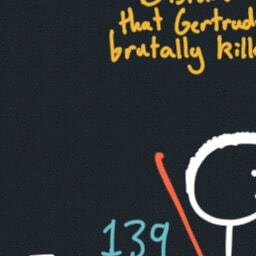 that Gertrud
brutally kill
139